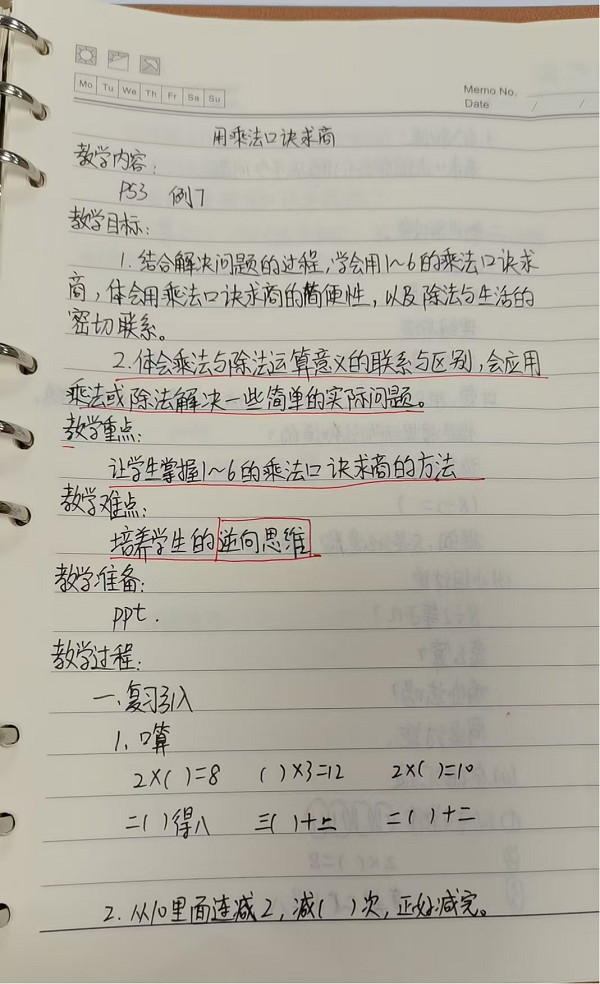 Mo Tu We Th Fr Sa Su
Memo No.
Date / /
用乘法口诀求商
教学内容:
P53 例7
教学目标:
1. 结合解决问题的过程,学会用1~6的乘法口诀求
商,体会用乘法口诀求商的简便性,以及除法与生活的
密切联系。
2.体会乘法与除法运算意义的联系与区别,会应用
乘法或除法解决一些简单的实际问题。
教学重点:
让学生掌握1~6的乘法口诀求商的方法
教学难点:
培养学生的逆向思维
教学准备:
ppt.
教学过程:
一.复习引入
1. 口算
2×( )=8 ( )×3=12 2×( )=10
二( )得八 三( )十二 二( )十
2. 从10里面连减2,减( )次,正好减完。